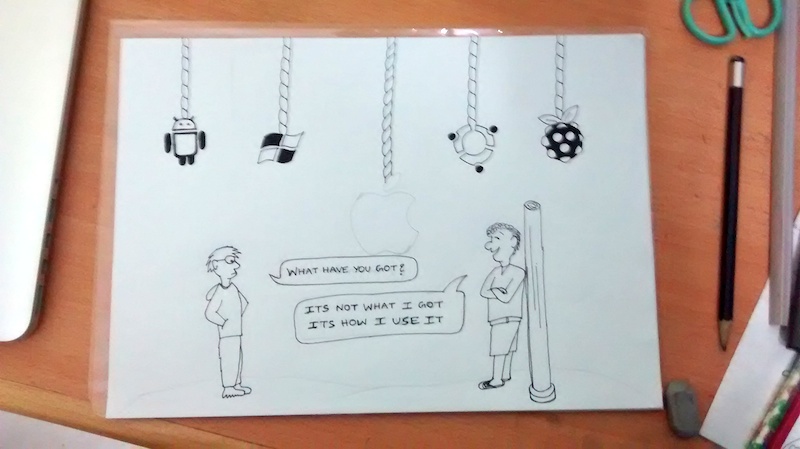 WHAT HAVE YOU GOT?
ITS NOT WHAT I GOT
ITS HOW I USE IT